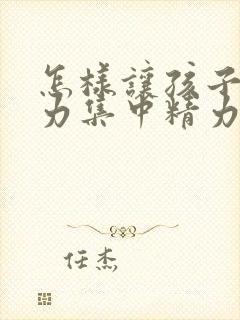 怎樣讓孩子
力集中精力
任杰